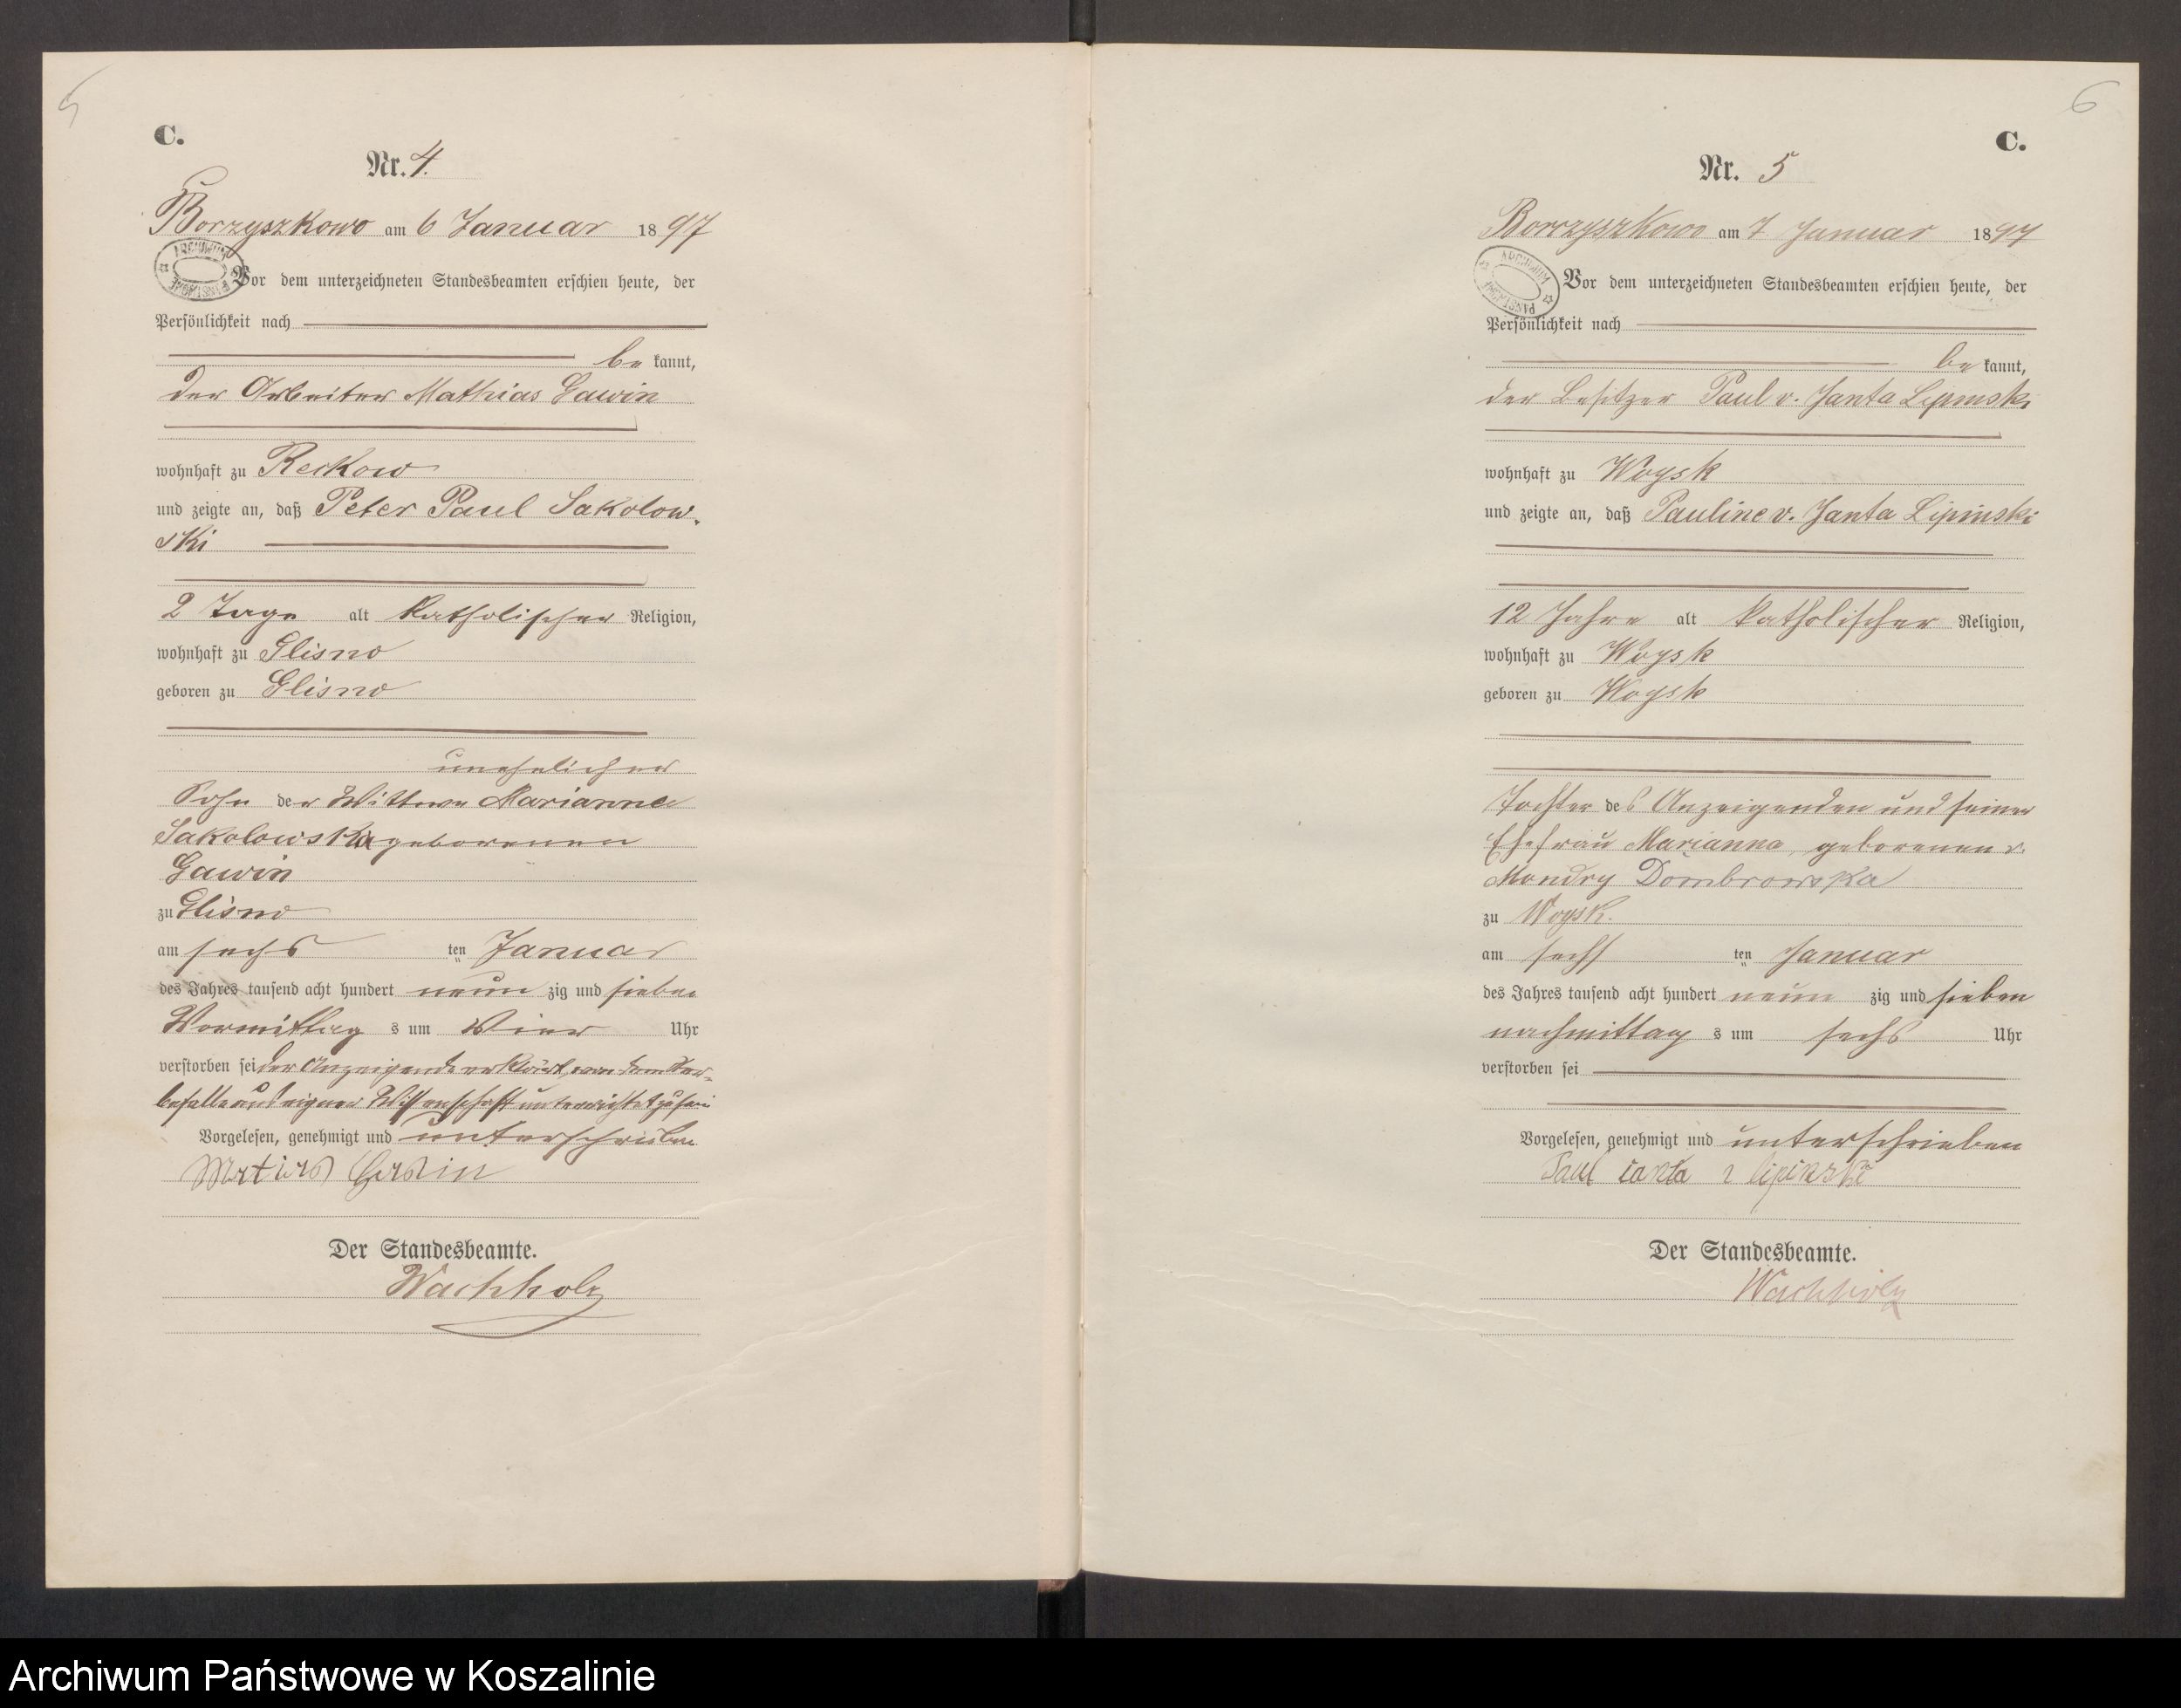 5
C.
Nr. 4.
Borzyszkowo am 6 Januar 1897
ARCHIWUM PAŃSTWOWE
Vor dem unterzeichneten Standesbeamten erschien heute, der
Persönlichkeit nach
be kannt,
der Arbeiter Mathias Gawin
wohnhaft zu Reckow
und zeigte an, daß Peter Paul Sakolow-
ski
2 Tage alt katholischer Religion,
wohnhaft zu Glisno
geboren zu Glisno
unehelicher
Sohn der Wittwe Marianne
Sakolowska geborenen
Gawin
zu Glisno
am sechs ten Januar
des Jahres tausend acht hundert neun zig und sieben
Vormittag s um Vier Uhr
verstorben sei der Anzeigende erklärt, von dem Ster-
befalle aus eigner Wissenschaft unterrichtet zu sein
Vorgelesen, genehmigt und unterschrieben
Matias Gawin
Der Standesbeamte.
Wachholz
6
C.
Nr. 5
Borzyszkowo am 7 Januar 1897
ARCHIWUM PAŃSTWOWE
Vor dem unterzeichneten Standesbeamten erschien heute, der
Persönlichkeit nach
be kannt,
der Besitzer Paul v. Janta Lipinski
wohnhaft zu Woysk
und zeigte an, daß Pauline v. Janta Lipinski
12 Jahre alt katholischer Religion,
wohnhaft zu Woysk
geboren zu Woysk
Tochter des Anzeigenden und seiner
Ehefrau Marianna, geborenen v.
Mondry Dombrowska
zu Woysk.
am sechs ten Januar
des Jahres tausend acht hundert neun zig und sieben
nachmittag s um sechs Uhr
verstorben sei
Vorgelesen, genehmigt und unterschrieben
Paul Janta lipinski
Der Standesbeamte.
Wachholz
Archiwum Państwowe w Koszalinie